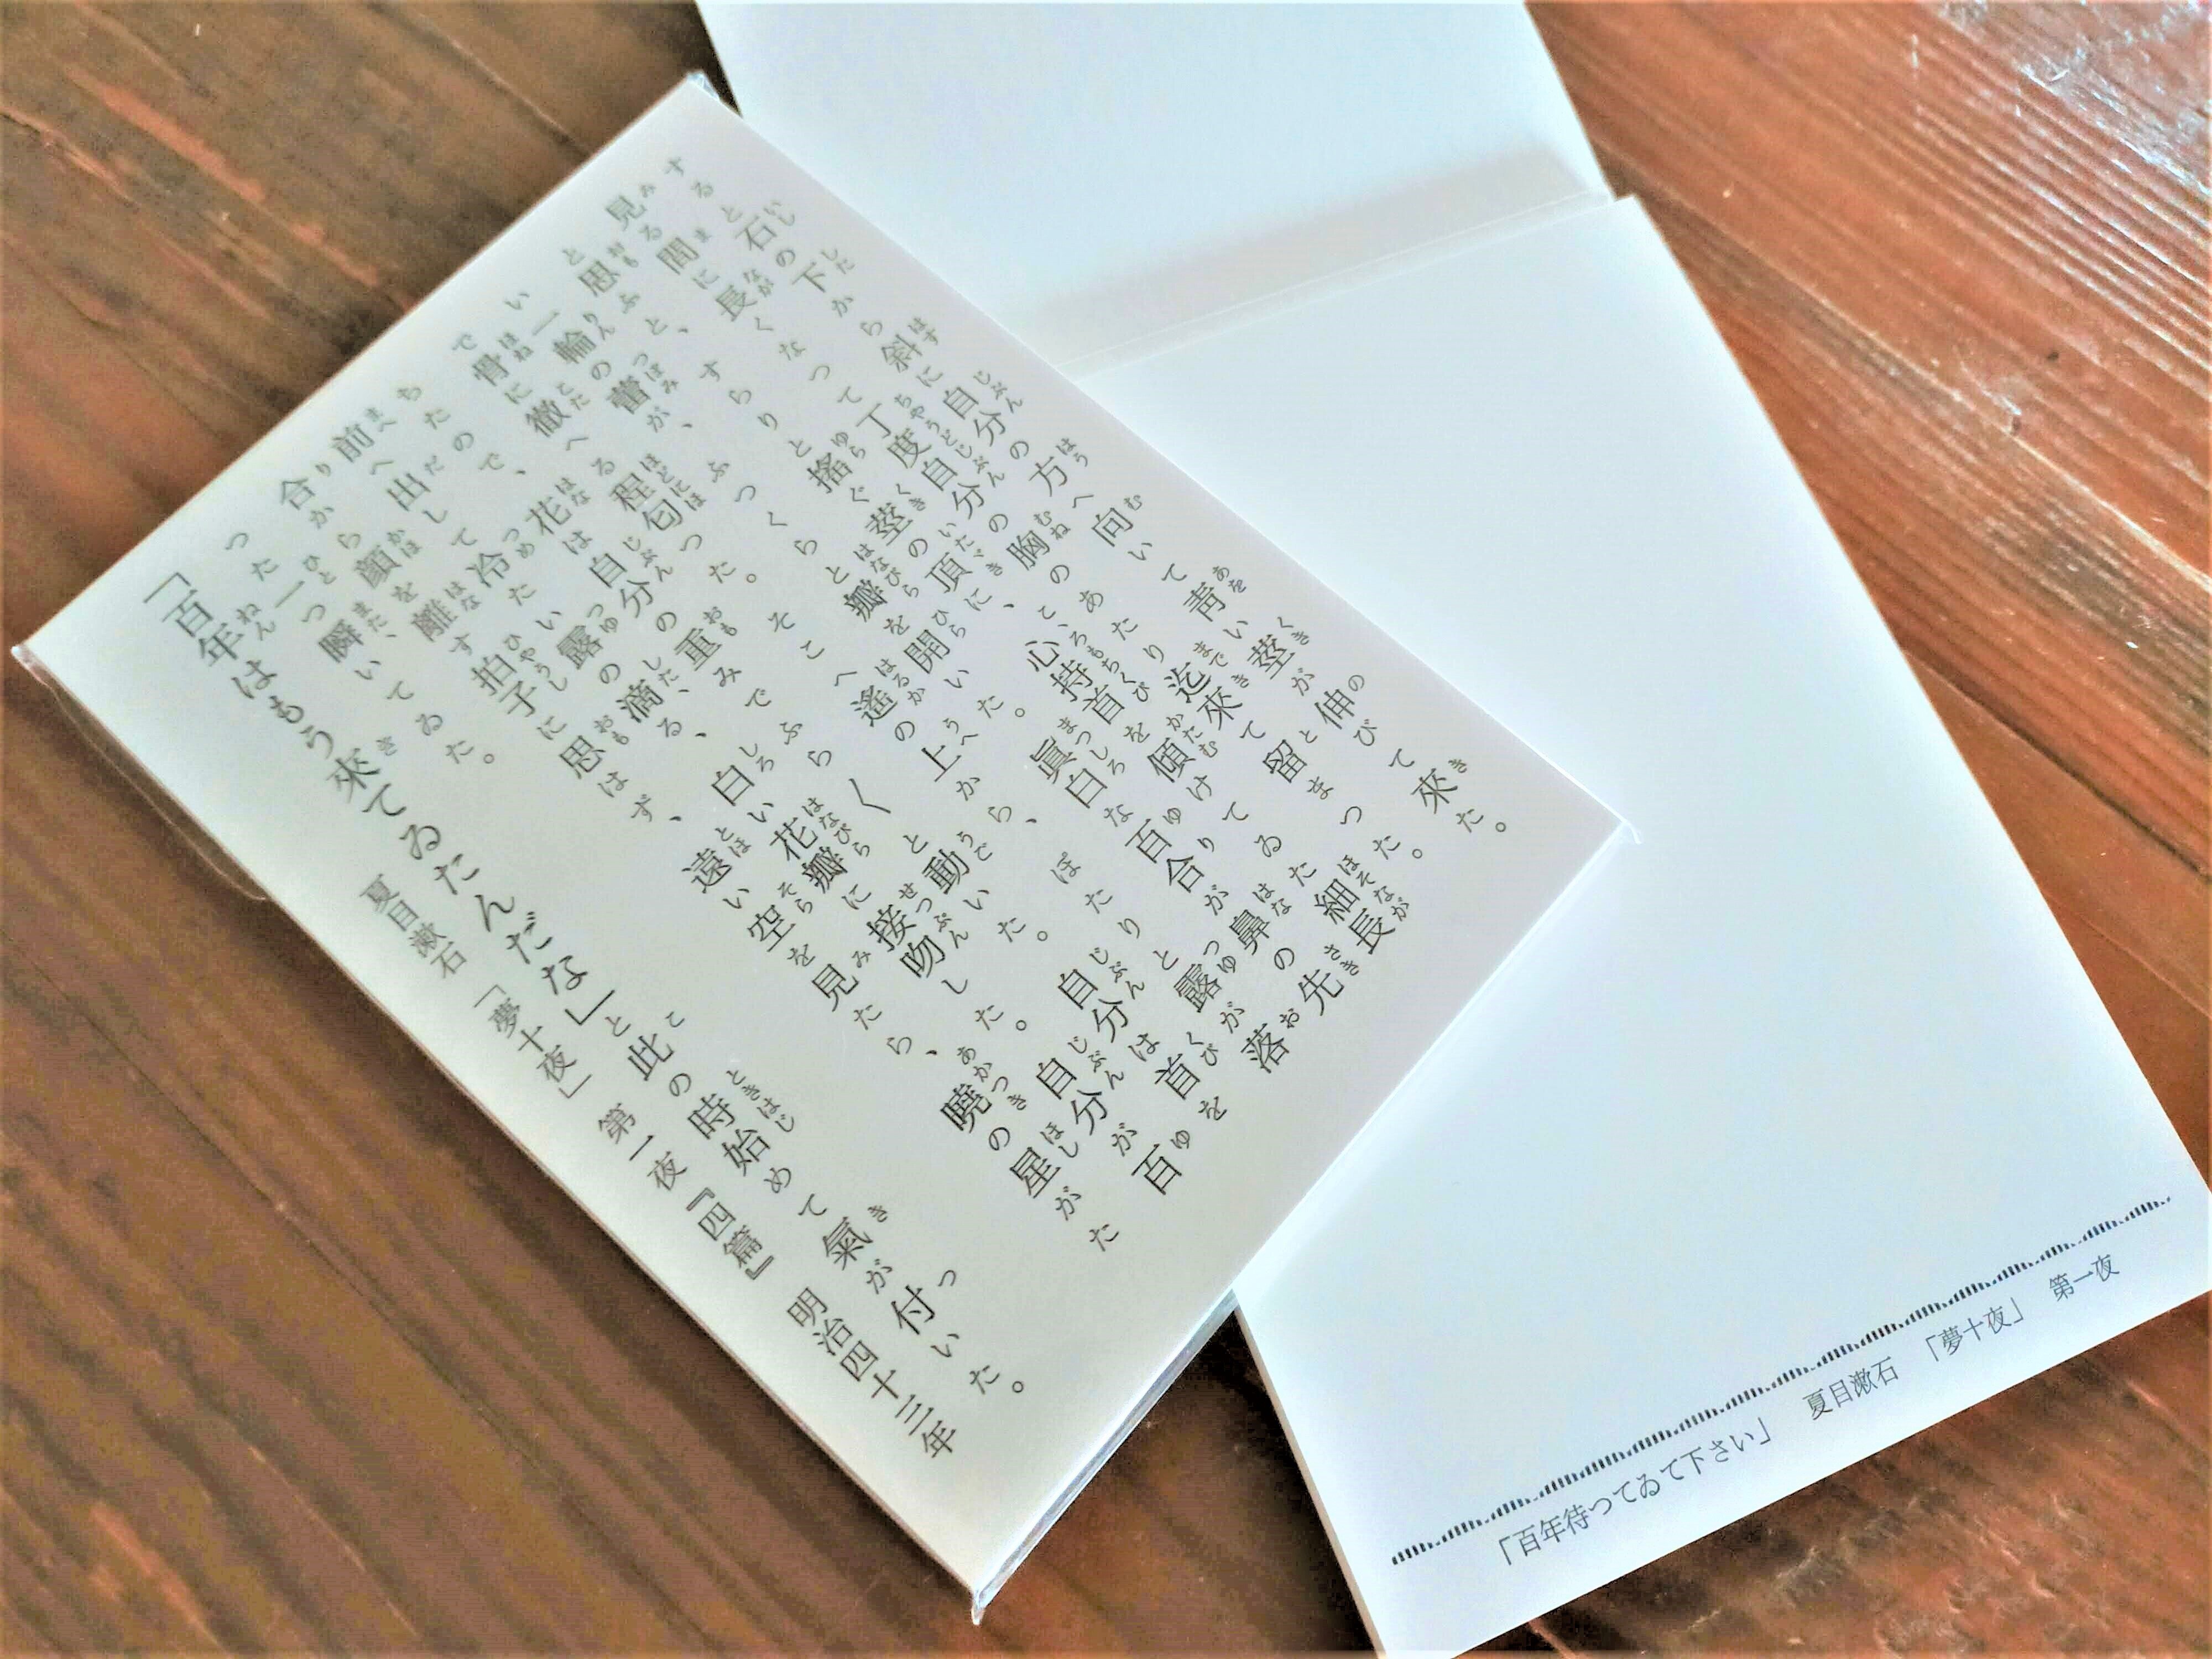 すると石の下から斜に自分の方へ向いて靑い莖が伸びて來た。
見る間に長くなつて丁度自分の胸のあたり迄來て留まつた。
と思ふと、すらりと搖ぐ莖の頂に、心持首を傾けてゐた細長
い一輪の蕾が、ふつくらと瓣を開いた。眞白な百合が鼻の先
で骨に徹へる程匂つた。そこへ遙の上から、ぽたりと露が落
ちたので、花は自分の重みでふら〱と動いた。自分は首を
前へ出して冷たい露の滴る、白い花瓣に接吻した。自分が百
合から顔を離す拍子に思はず、遠い空を見たら、曉の星がた
つた一つ瞬いてゐた。
「百年はもう來てゐたんだな」と此の時始めて氣が付いた。
夏目漱石 「夢十夜」 第一夜 『四篇』 明治四十三年
「百年待つてゐて下さい」 夏目漱石 「夢十夜」 第一夜